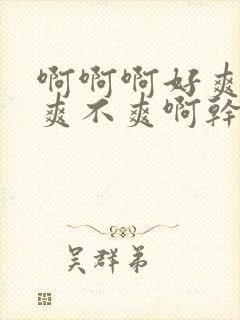 啊啊啊好爽
爽不爽啊幹
吴群弟